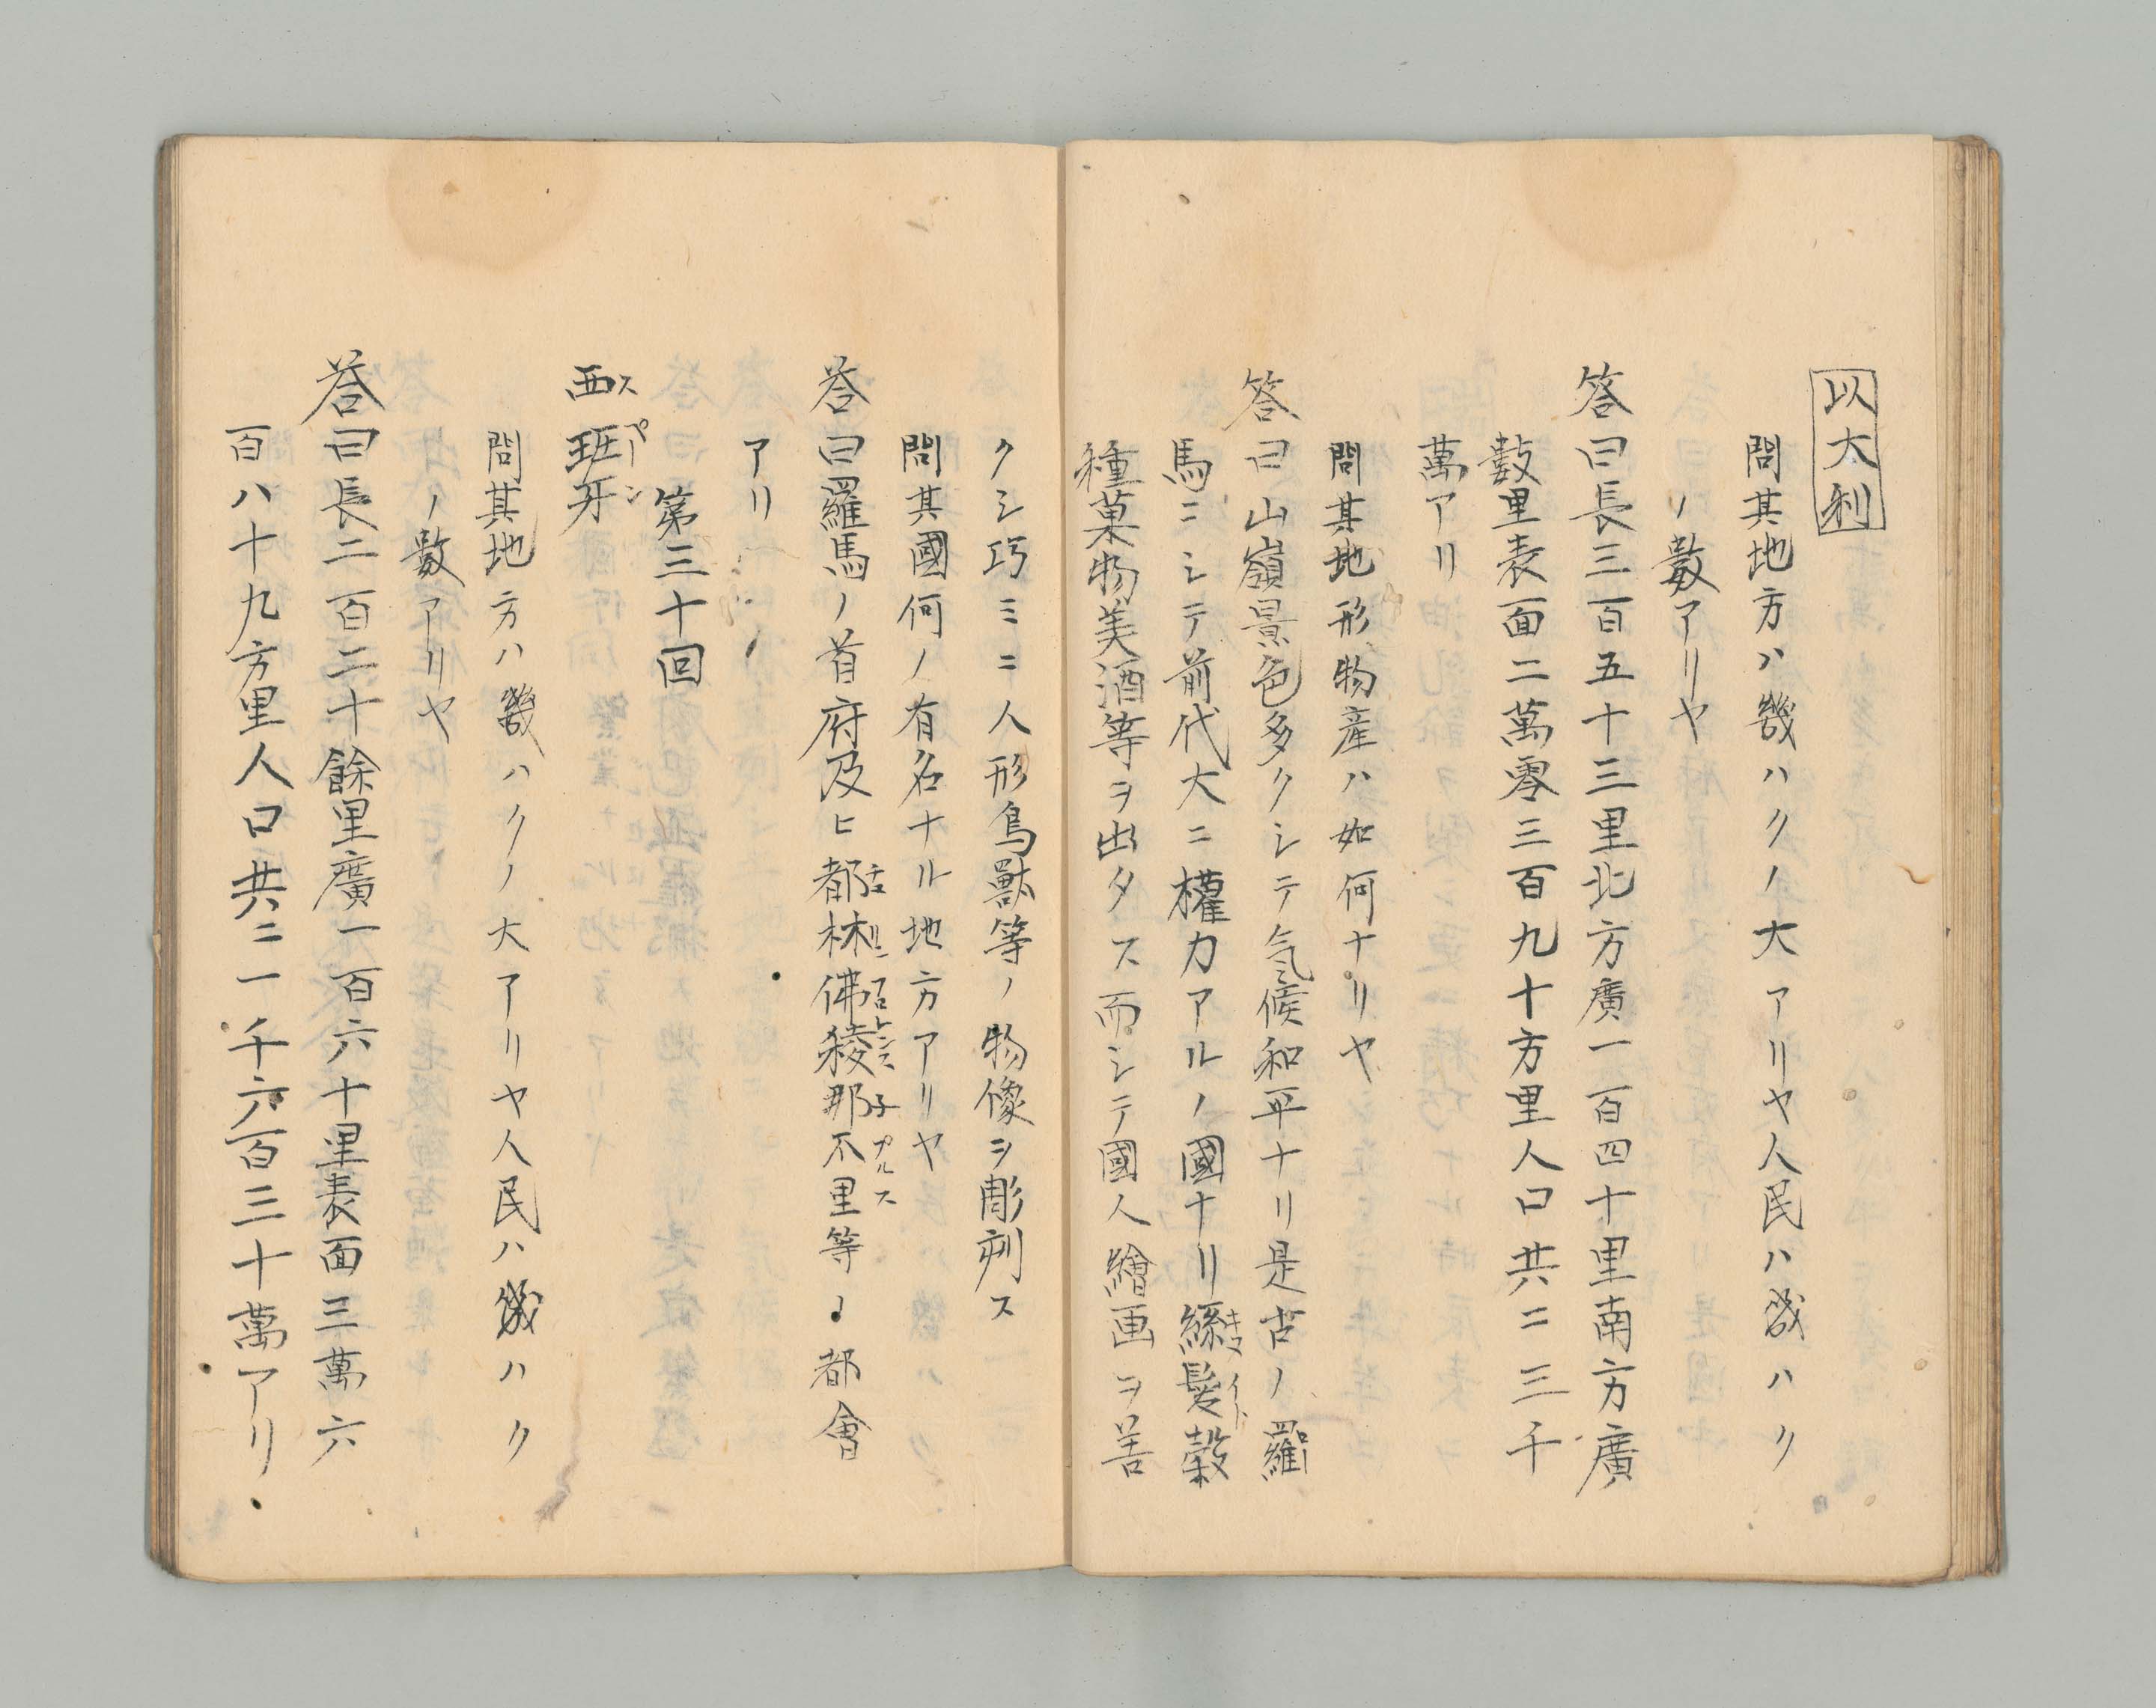 以太利
問其地方ハ幾ハクノ大アリヤ人民ハ幾ハク
ノ數アリヤ
答曰長三百五十三里北方廣一百四十里南方廣
數里表面二萬零三百九十方里人口共ニ三千
萬アリ
問其地形物産ハ如何ナリヤ
答曰山嶺景色多クシテ気候和平ナリ是古ノ羅
馬ニシテ前代大ニ權力アルノ國ナリ絲髮穀
種菓物美酒等ヲ出タス而シテ國人繪画ヲ善
クシ巧ミニ人形鳥獸等ノ物像ヲ彫刻ス
問其國何ノ有名ナル地方アリヤ
答曰羅馬ノ首府及ヒ都林佛稜那不里等ノ都會
アリ
第三十回
西班牙
問其地方ハ幾ハクノ大アリヤ人民ハ幾ハク
ノ數アリヤ
答曰長二百二十餘里廣一百六十里表面三萬六
百八十九方里人口共ニ一千六百三十萬アリ